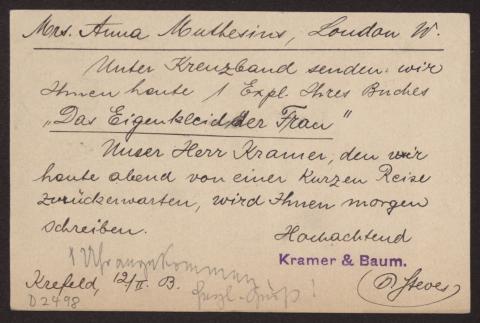 Mrs. Anna Muthesius, London W.
Unter Kreuzband senden wir
Ihnen heute 1 Expl. Ihres Buches
„Das Eigenkleid der Frau"
Unser Herr Kramer, den wir
heute abend von einer kurzen Reise
zurückerwarten, wird Ihnen morgen
schreiben.
Hochachtend
Kramer & Baum.
1 Uhr angekommen
herzl. Gruß!
Krefeld, 12/II. 03.
D 2498